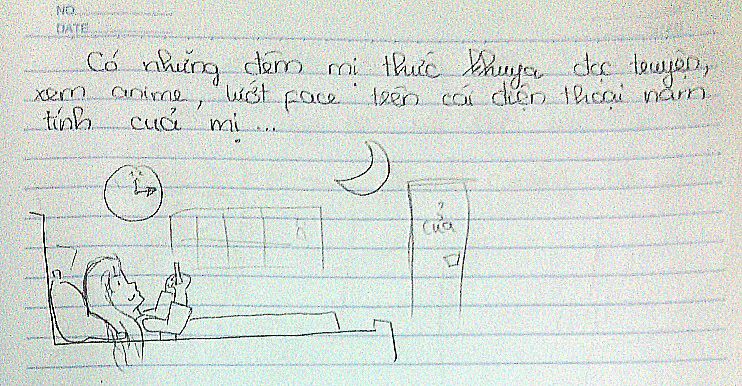 NO.
DATE
Có những đêm mị thức khuya đọc truyện,
xem anime, lướt face trên cái điện thoại nằm
tính cuả mị...
12
cửa